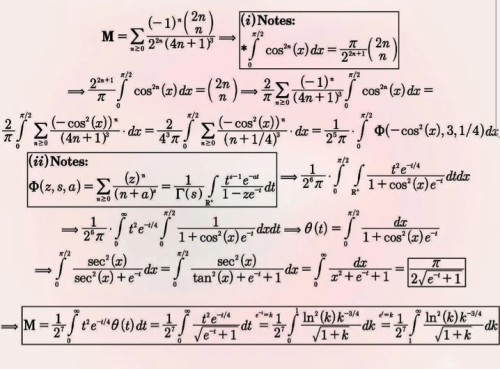 M = ∑_{n≥0} (-1)^n (2n n) / 2^{2n}(4n+1)^3 ⟹ (i)Notes: * ∫_0^{π/2} cos^{2n}(x) dx = π/2^{2n+1} (2n n)
⟹ 2^{2n+1}/π ∫_0^{π/2} cos^{2n}(x) dx = (2n n) ⟹ 2/π ∑_{n≥0} (-1)^n/(4n+1)^3 ∫_0^{π/2} cos^{2n}(x) dx =
2/π ∫_0^{π/2} ∑_{n≥0} (-cos²(x))^n/(4n+1)^3 · dx = 2/4^3π ∫_0^{π/2} ∑_{n≥0} (-cos²(x))^n/(n+1/4)^3 · dx = 1/2^5π · ∫_0^{π/2} Φ(-cos²(x), 3, 1/4) dx
(ii)Notes: Φ(z, s, a) = ∑_{n≥0} (z)^n/(n+a)^s = 1/Γ(s) ∫_{R^+} t^{s-1}e^{-at}/1-ze^{-t} dt ⟹ 1/2^6π · ∫_0^{π/2} ∫_{R^+} t²e^{-t/4}/1+cos²(x)e^{-t} dtdx
⟹ 1/2^6π · ∫_0^∞ t²e^{-t/4} ∫_0^{π/2} 1/1+cos²(x)e^{-t} dxdt ⟹ θ(t) = ∫_0^{π/2} dx/1+cos²(x)e^{-t}
⟹ ∫_0^{π/2} sec²(x)/sec²(x)+e^{-t} dx = ∫_0^{π/2} sec²(x)/tan²(x)+e^{-t}+1 dx = ∫_0^∞ dx/x²+e^{-t}+1 = π/2√e^{-t}+1
⟹ M = 1/2^7 ∫_0^∞ t²e^{-t/4}θ(t) dt = 1/2^7 ∫_0^∞ t²e^{-t/4}/√e^{-t}+1 dt =^{e^{-t}=k} 1/2^7 ∫_0^1 ln²(k)k^{-3/4}/√1+k dk =^{e^t=k} 1/2^7 ∫_1^∞ ln²(k)k^{-3/4}/√1+k dk